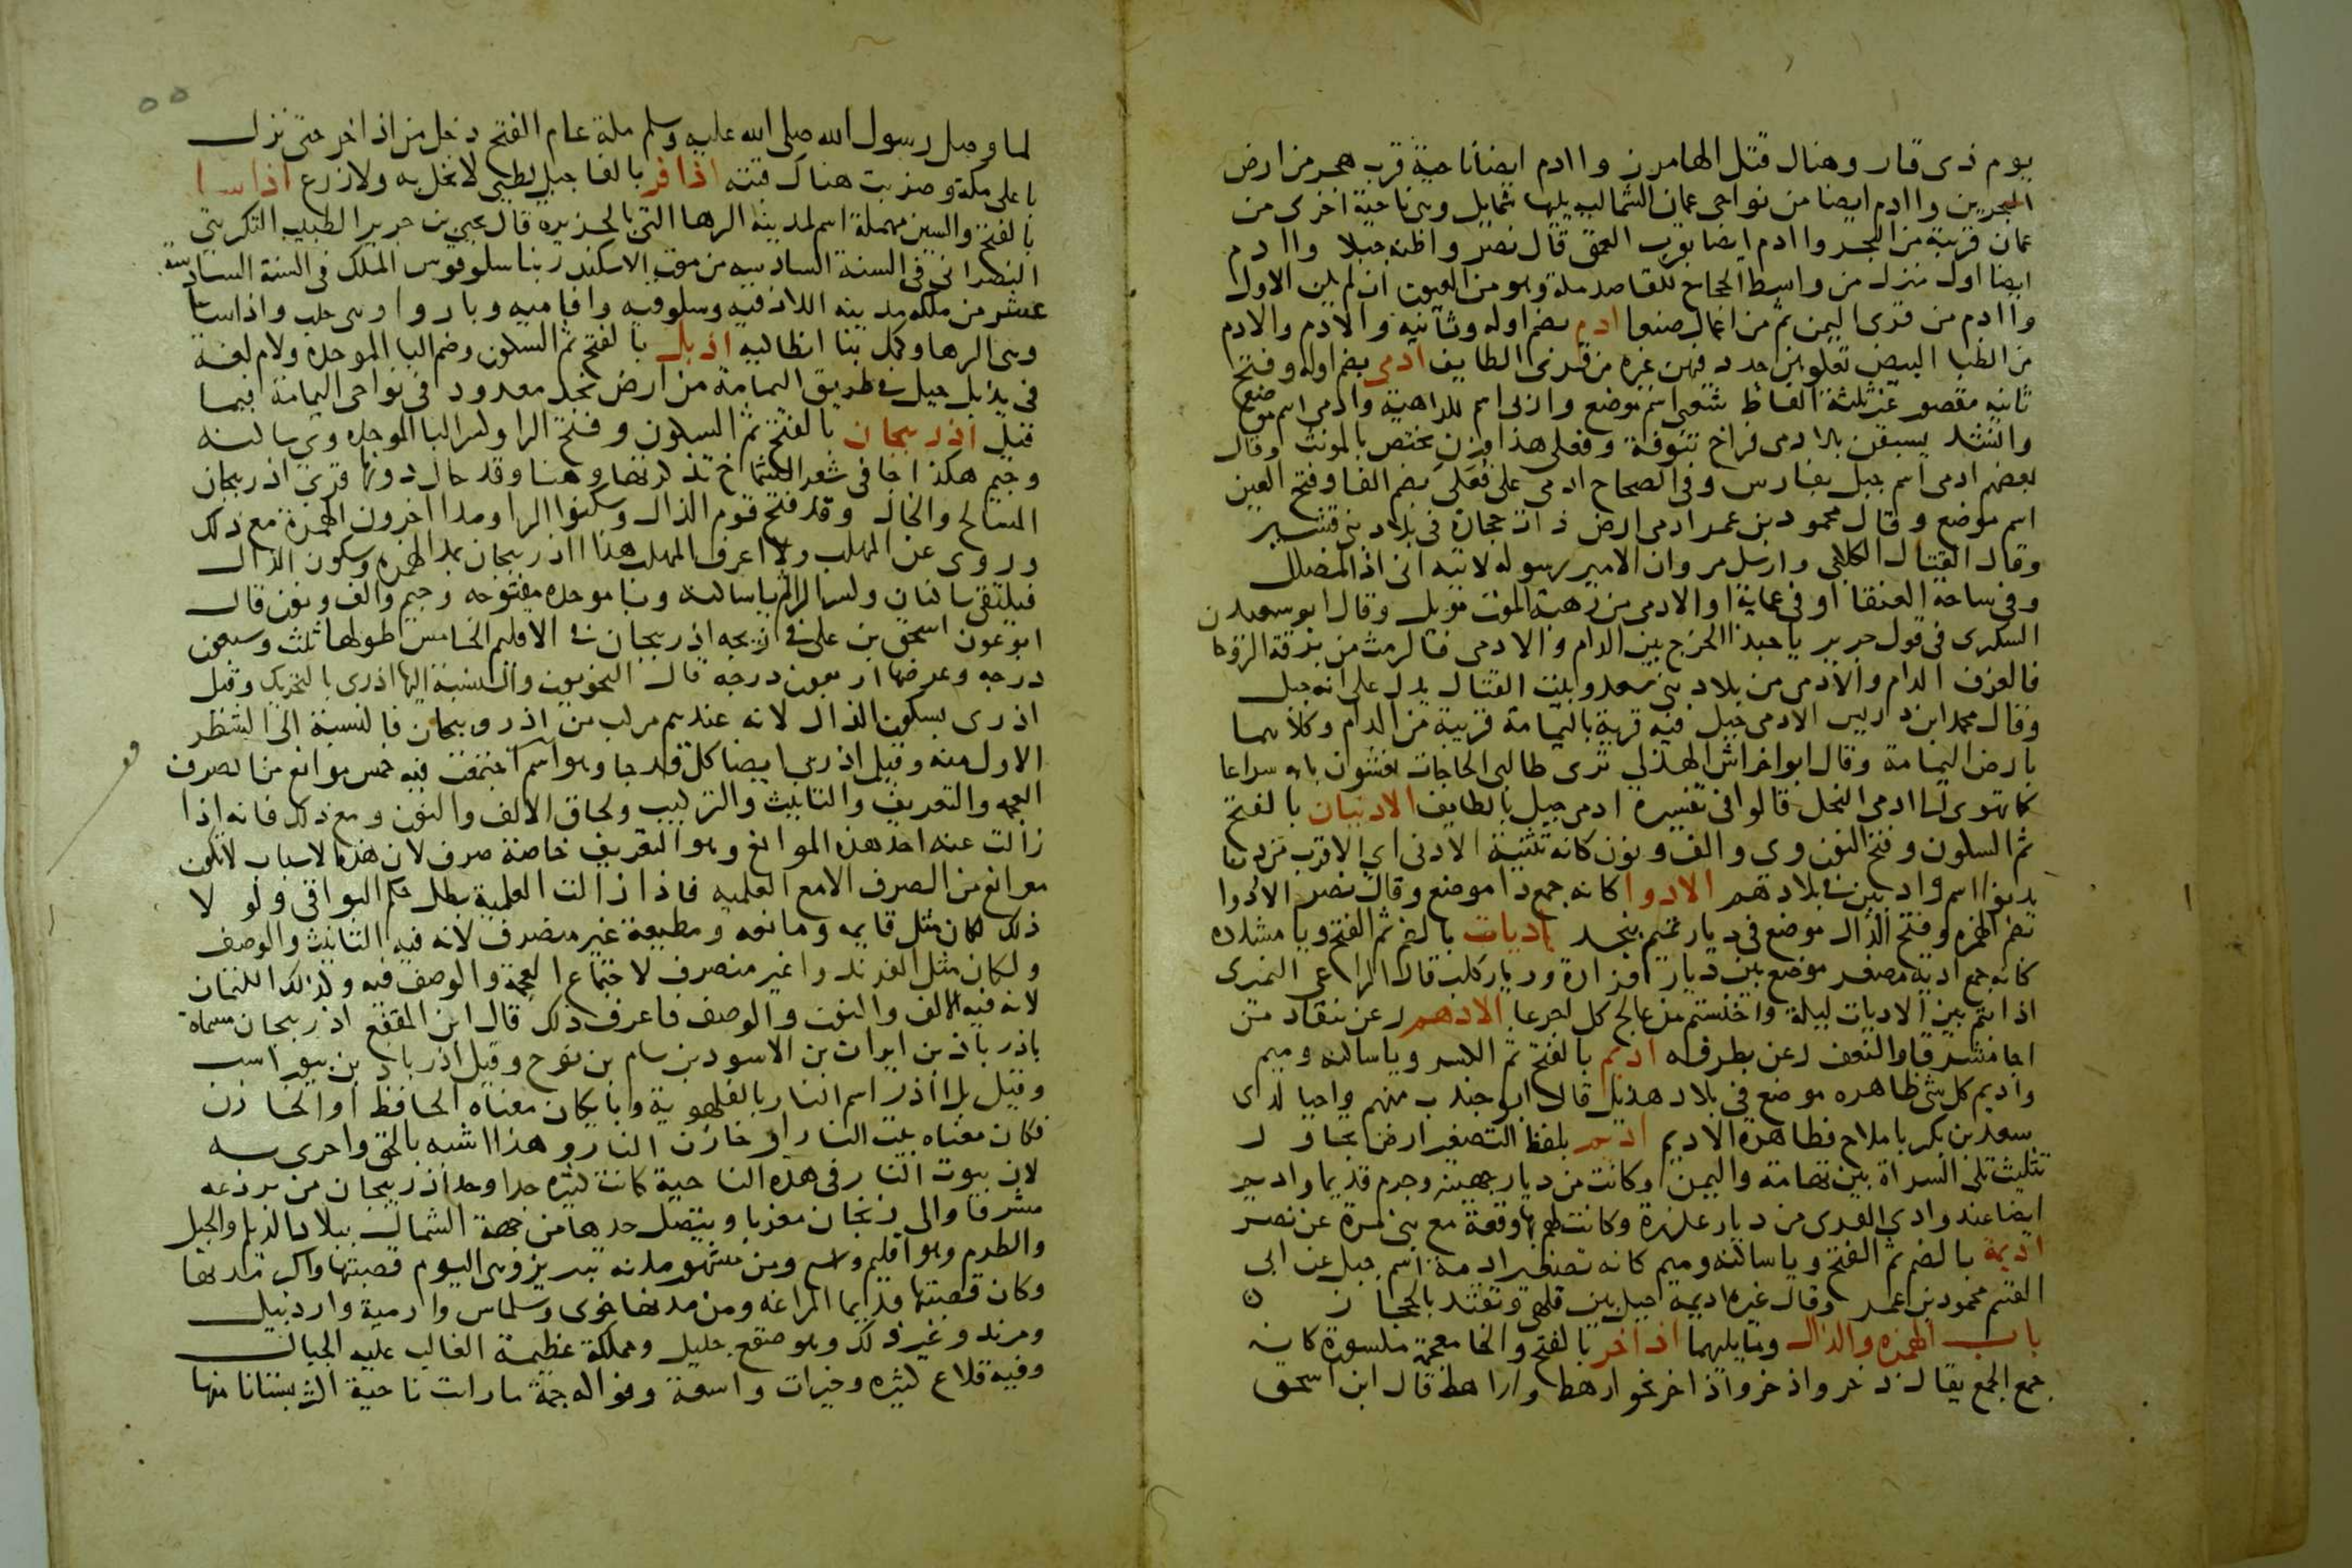 يوم ذى قار وهناك قتل الهامرز و اادم ايضا ناحية قرب هجر من ارض
البحرين و اادم ايضا من نواحى عمان الشمالية يليها شمايل وهى ناحية اخرى من
عمان قريبة من البحر و اادم ايضا بقرب العمق قال نصر واظنه جبلا و اادم
ايضا اول منزل من واسط الحجاج للقاصد مكة وهو من العيون ان لم يكن الاول
و اادم من قرى اليمن ثم من اعمال صنعا ادم بضم اوله وثانيه والادم والادم
من الظبا البيض تعلوهن جدد فيهن غبره من قرى الطايف ادمى بضم اوله وفتح
ثانيه مقصور عن ثلثة الفاظ شعبى اسم موضع وادنى اسم للداهية وادمى اسم موضع
وانشد يسبقن بالادمى فراخ تنوفة وفعلى هذا وزن يختص بالمونث وقال
بعضهم ادمى اسم جبل بفارس وفى الصحاح ادمى على فعلى بضم الفا وفتح العين
اسم موضع وقال محمود بن عمر ادمى ارض ذات حجارة فى بلاد بنى قشير
وقال القتال الكلابى وارسل مروان الامير رسوله لاتيه انى اذا لمضلل
وفى ساحة العنقا او فى عماية او الادمى من رهبة الموت موبل وقال ابو سعيد ن
السكرى فى قول جرير يا حبذا الخرج بين الدام والادمى فالرمث من برقة الروحا
فالغرف الدام والادمى من بلاد بنى سعد وبيت القتال يدل على انه جبل
وقال محمد ابن ادريس الادمى جبل فيه قرية باليمامة قريبة من الدام وكلاهما
بارض اليمامة وقال ابو اخراش الهذلى ترى طالبى الحاجات يغشون بابه سراعا
كما تهوى الى ادمى النحل قالوا فى تفسيره ادمى جبل بالطايف الادنيان بالفتح
ثم السكون وفتح النون وى والف ونون كانه تثنية الادنى اى الاقرب من دنا
يدنوا اسم واد بين فى بلادهم الادوا كانه جمع دا موضع وقال نصر الادوا
بضم الهمزه وفتح الدال موضع فى ديار تميم بنجد اديات بالضم ثم الفتح ويا مشدده
كانه جمع ادية مصغر موضع بين ديار فزارة وديار كلب قال الراعى النميرى
اذا بتم بين الاديات ليلة واخنستم من عالج كل اجرعا الادهم رعن ينقاد من
اجا مشرقا والنعف رعن بطرفه اديم بالفتح ثم الكسر ويا ساكنه وميم
واديم كل شى ظاهره موضع فى بلاد هذيل قال ابو جندب منهم واحيا لدى
سعد بن بكر باملاح فظاهرة الاديم اديم بلفظ التصغير ارض تجاو ر
تثليث تلى السراة بين تهامة واليمن وكانت من ديار جهينة وجرم قديما واديم
ايضا عند وادى القرى من ديار عذرة وكانت لهم بها وقعة مع بنى مرة عن نصر
اديمة بالضم ثم الفتح ويا ساكنه وميم كانه تصغير ادمة اسم جبل عن ابى
القسم محمود بن عمر وقال غيره اديمة جبل بين قلهى وتقتد بالحجاز
باب الهمزه والذال وما يليهما اذاخر بالفتح والخا معجمة مكسورة كانه
جمع الجمع يقال ذخر واذخر واذاخر نحو ارهط واراهط قال ابن اسحق
لما وصل رسول الله صلى الله عليه وسلم مكة عام الفتح دخل من اذاخر حتى نزل
باعلى مكة وضربت هناك قبته اذافر بالفا جبل لطيى لا نخل به ولا زرع اذاسا
بالفتح والسين مهملة اسم لمدينة الرها التى بالجزيره قال يحيى بن جرير الطبيب التكريتى
النصرانى فى السنة السادسه من موت الاسكندر بنا سلوقوس الملك فى السنة السادسة
عشر من ملكه مدينة اللاذقيه وسلوقيه وافاميه وباروا وهى حلب واذاسا
وهى الرها وكمل بنا انطاكيه اذبل بالفتح ثم السكون وضم البا الموحده ولام لغة
فى يذبل جبل فى طريق اليمامة من ارض نجد معدود فى نواحى اليمامة فيما
قيل اذربيجان بالفتح ثم السكون وفتح الرا وكسر البا الموحده وى ساكنه
وجيم هكذا جا فى شعر الشماخ تذكرتها وهنا وقد حال دونها قرى اذربيجان
المسالح والجال وقد فتح قوم الذال وسكنوا الرا ومدا اخرون الهمزة مع ذلك
وروى عن المهلب ولا اعرف المهلب هذا ااذربيجان بمد الهمزه وسكون الذال
فيلتقى ساكنان وكسر الرا ثم يا ساكنة وبا موحده مفتوحه وجيم والف ونون قال
ابو عون اسحق بن على فى زيجه اذربيجان فى الاقليم الخامس طولها ثلث وسبعون
درجه وعرضها اربعون درجه قال النحويون والنسبة اليها اذرى بالتحريك وقيل
اذرى بسكون الذال لانه عندهم مركب من اذر وبيجان فالنسبة الى الشطر
الاول منه وقيل اذربى ايضا كل قد جا وهو اسم اجتمعت فيه خمس موانع من الصرف
العجمه والتعريف والتانيث والتركيب ولحاق الالف والنون ومع ذلك فانه اذا
زالت عنه احد هذه الموانع وهو التعريف خاصة صرف لان هذه الاسباب لا تكون
موانع من الصرف الا مع العلميه فاذا زالت العلمية بطل حكم البواقى ولو لا
ذلك لكان مثل قايمه ومانعه ومطيعة غير منصرف لانه فيه التانيث والوصف
ولكان مثل الفرند واغير منصرف لاجتماع العجمة والوصف فيه وكذلك الكتمان
لانه فيه الالف والنون والوصف فاعرف ذلك قال ابن المقفع اذربيجان مسماة
باذرباذ بن ايران بن الاسود بن سام بن نوح وقيل اذرباد بن بيوراسب
وقيل بل اذر اسم النار بالفلهوية وبايكان معناه الحافظ او الخازن
فكان معناه بيت النار او خازن النار وهذا اشبه بالحق واحرى به
لان بيوت النار فى هذه الناحية كانت كثيره جدا وحد اذربيجان من برذعه
مشرقا والى زنجان مغربا ويتصل حدها من جهة الشمال ببلاد الديلم والجيل
والطرم وهو اقليم واسع ومن مشهور مدنه تبريز وهى اليوم قصبتها واكبر مدنها
وكان قصبتها قديما المراغه ومن مدنها خوى وسلماس وارمية واردبيل
ومرند وغير ذلك وهو صقع جليل ومملكة عظيمة الغالب عليه الجبال
وفيه قلاع كثيره وخيرات واسعة وفواكه جمة ما رايت ناحية اكثر بستانا منها